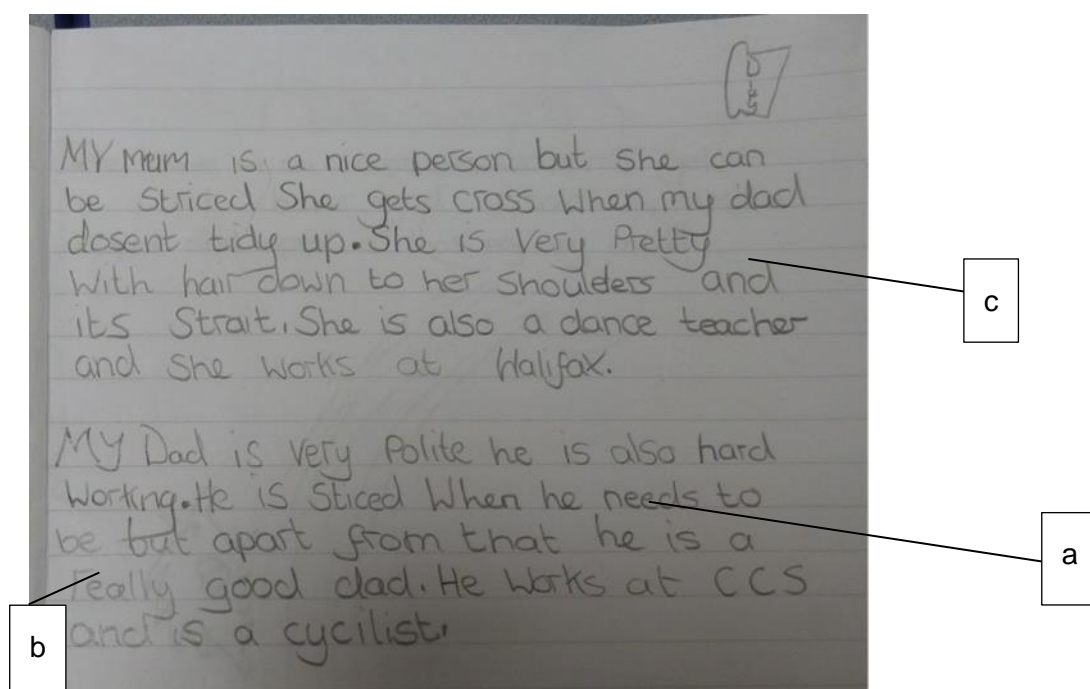 MY mum is a nice person but she can
be Striced She gets cross when my dad
dosent tidy up. She is very Pretty
With hair down to her shoulders and
its Strait. She is also a dance teacher
and she works at Halifax.
c
MY Dad is very Polite he is also hard
working. He is Sticed When he needs to
be but apart from that he is a
really good dad. He works at CCS
and is a cycilist.
a
b